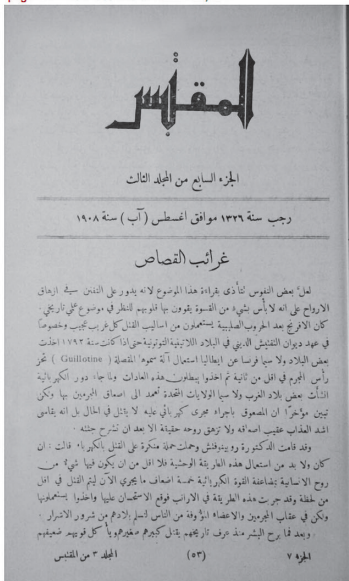 المقتبس
الجزء السابع من المجلد الثالث
رجب سنة ١٣٢٦ موافق اغسطس ( آب ) سنة ١٩٠٨
غرائب القصاص
لعل بعض النفوس تتأذى بقراءة هذا الموضوع لانه يدور على التفنن في ازهاق
الارواح على انه لا بأس بشيء من القسوة يقوون بها قلوبهم للنظر في موضوع علمي تاريخي .
كان الافرنج بعد الحروب الصليبية يستعملون من اساليب القتل كل غريب عجيب وخصوصاً
في عهد ديوان التفتيش الديني في البلاد اللاتينية التوتونية حتى اذا كانت سنة ١٧٩٢ اخذت
بعض البلاد ولا سيما فرنسا عن ايطاليا استعمال آلة سموها المقصلة ( Guillotine ) تحز
رأس المجرم في اقل من ثانية ثم اخذوا يبطلون هذه العادات ولما جاء دور الكهربائية
انشأت بعض بلاد الغرب ولا سيما الولايات المتحدة تعمد الى اصعاق المجرمين بها ولكن
تبين مؤخراً ان المصعوق باجراء مجرى كهربائي عليه لا يقتل في الحال بل انه يقاسي
اشد العذاب عقيب اصعاقه ولا تزهق روحه حقيقة الا بعد ان تشرح جثته .
وقد قامت الدكتورة روبينوفتش وحملت حملة منكرة على القتل بالكهرباء قالت : ان
كان ولا بد من استعمال هذه الطريقة الوحشية فلا اقل من ان يكون فيها شيء من
روح الانسانية بمضاعفة القوة الكهربائية خمسة اضعاف ما يجري الآن ليتم القتل في اقل
من لحظة وقد جربت هذه الطريقة في الارانب فوقع الاستحسان عليها واخذوا يستعملونها
ولكن في عقاب المجرمين والاعضاء المؤوفة من الناس لتسلم بلادهم من شرور الاشرار .
وبعد فما برح البشر منذ عرف تاريخهم يقتل كبيرهم صغيرهم ويأكل قويهم ضعيفهم
الجزء ٧ (٥٣) المجلد ٣ من المقتبس